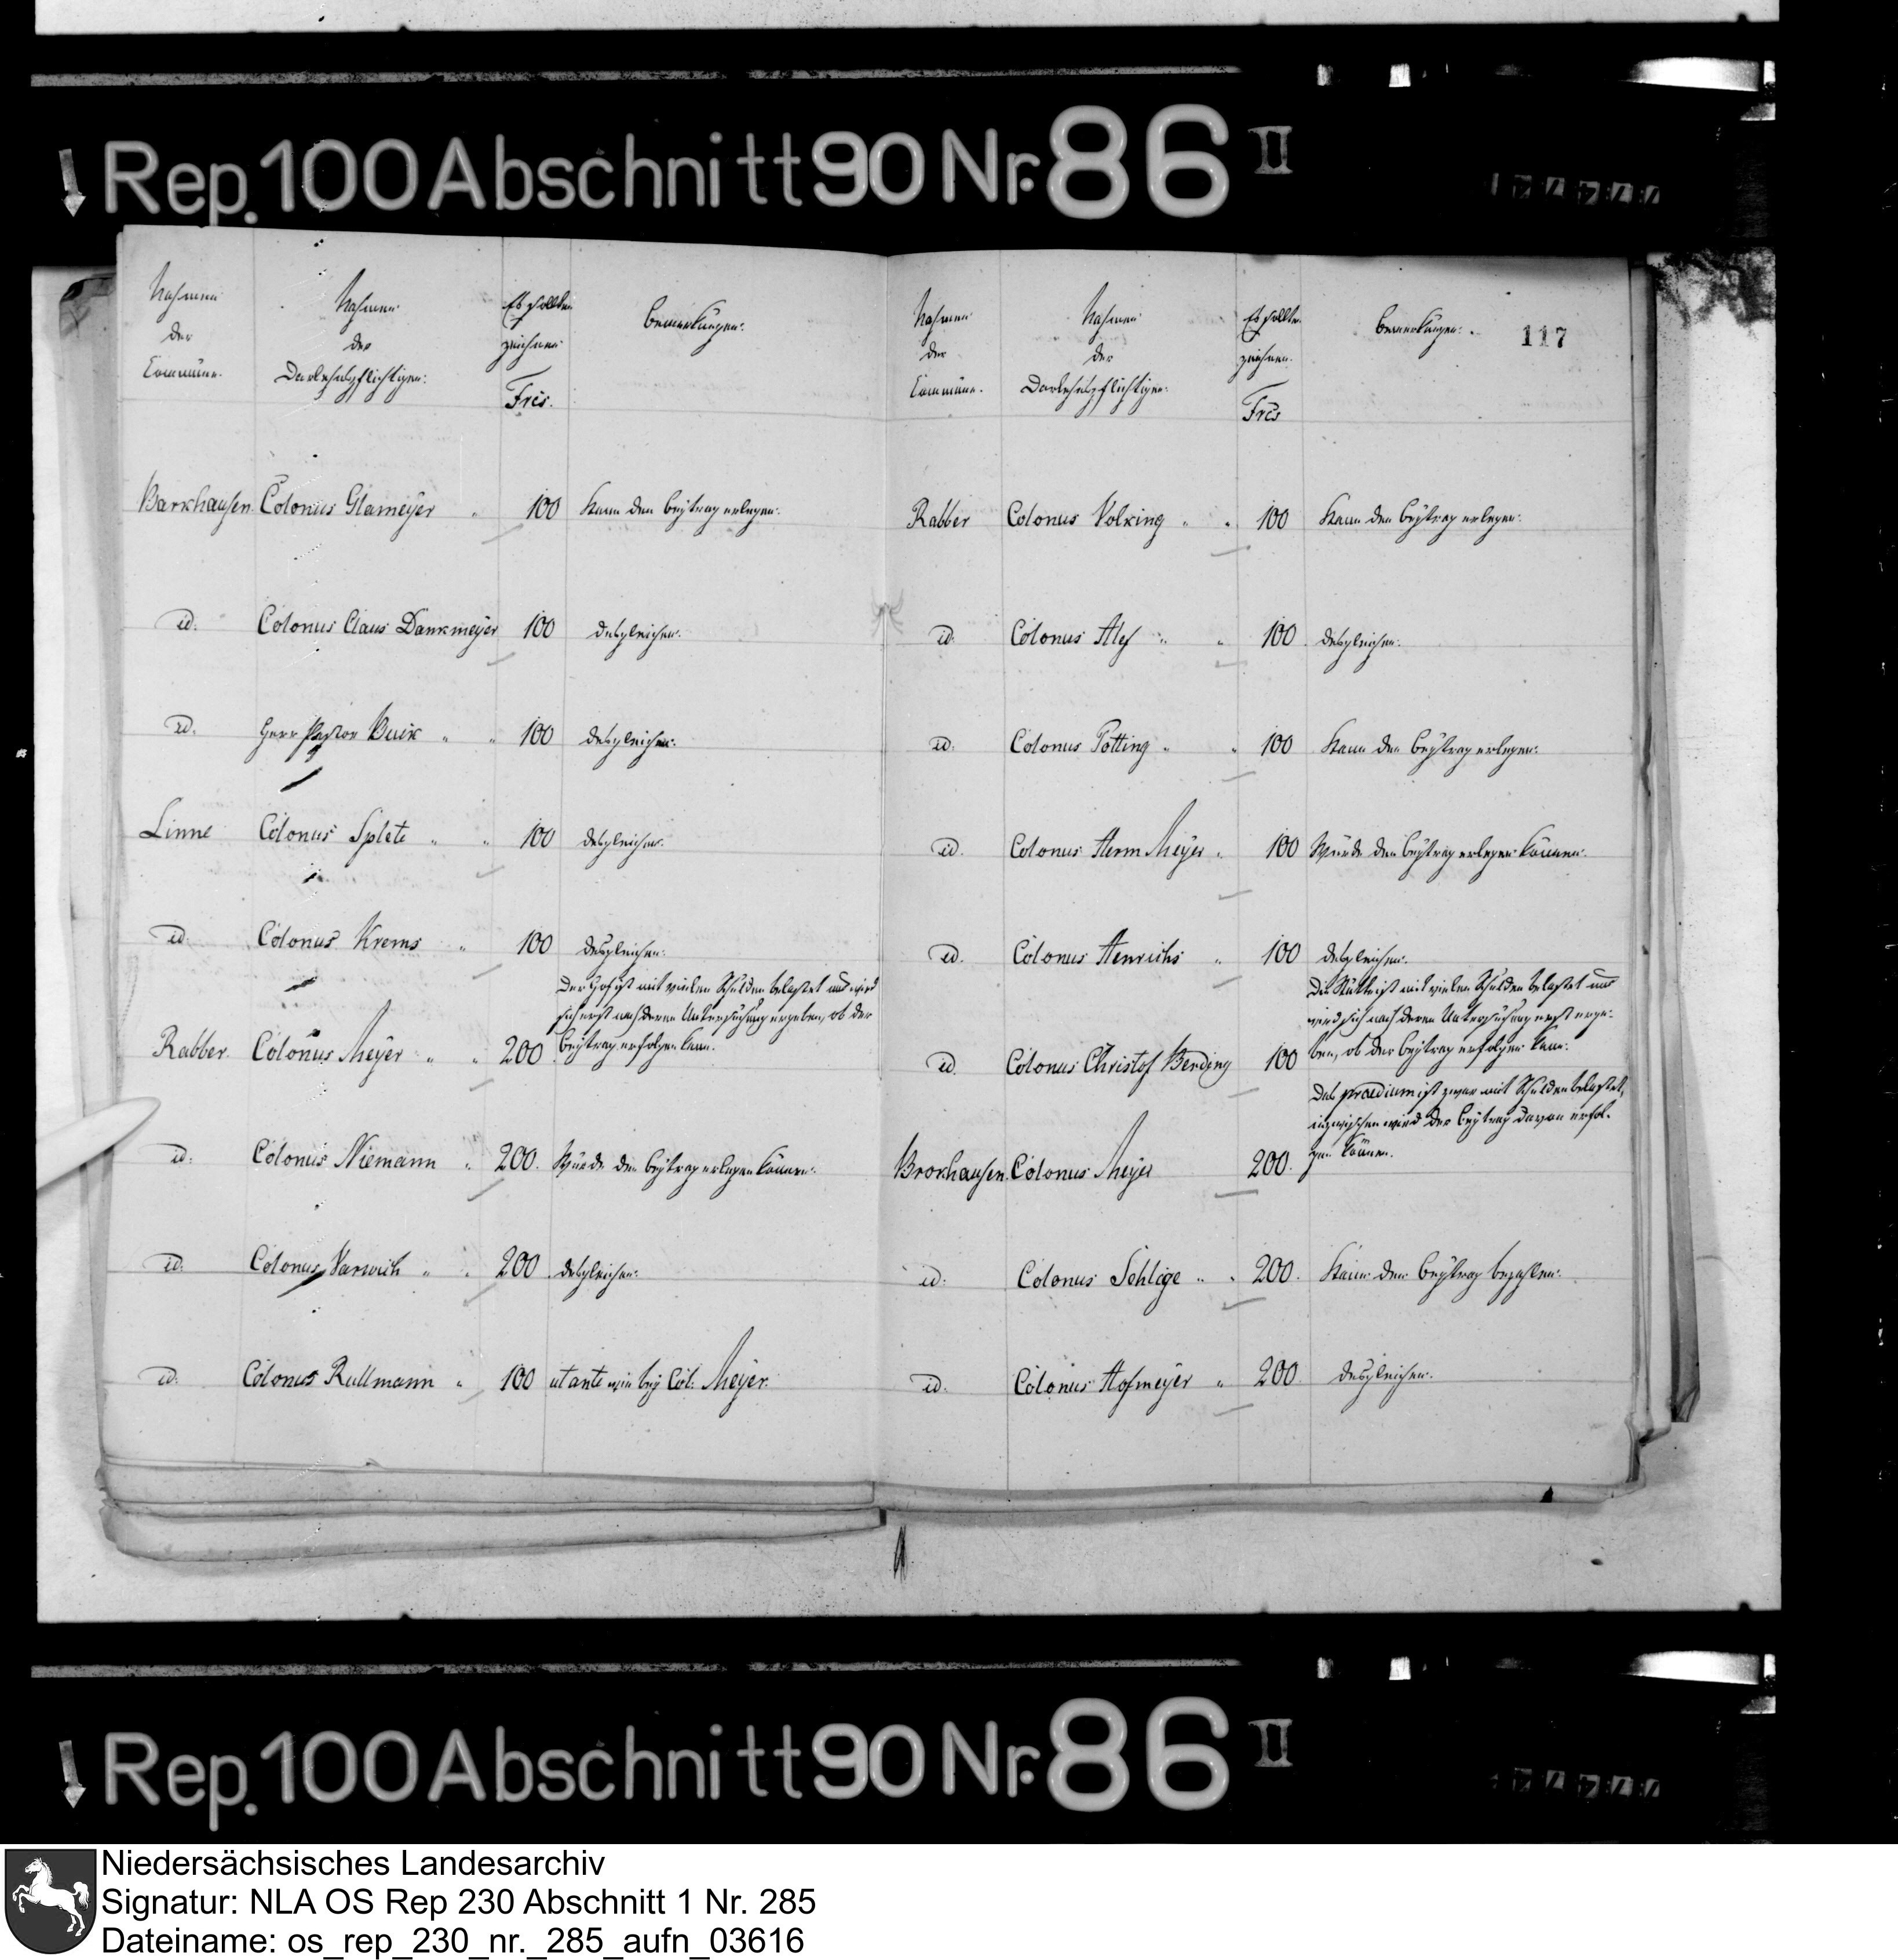 Rep. 100 Abschnitt 90 Nr. 86 II
Nahmen der Commüne.
Nahmen der Darlehnspflichtigen:
Es sollten zeichnen Frcs.
Bemerkungen:
Barkhausen. Colonus Glameÿer " 100 Kann den Beÿtrag erlegen.
id. Colonus Claus Dankmeÿer 100 desgleichen.
id. Herr Pastor Buck " " 100 desgleichen.
Linne Colonus Splete " " 100 desgleichen.
id. Colonus Krems " 100 desgleichen.
Der Hof ist mit vielen Schulden belastet und wird
sich erst nach deren Untersuchung ergeben, ob der
Rabber. Colonus Meÿer " " 200 Beÿtrag erfolgen kann.
id. Colonus Niemann " 200. Würde den Beÿtrag erlegen können.
id. Colonus Varwich " " 200. desgleichen.
id. Colonus Rullmann " 100 ut ante wie beÿ Col. Meÿer.
117
Nahmen der Commüne.
Nahmen der Darlehnspflichtigen:
Es sollten zeichnen. Frcs
Bemerkungen:
Rabber Colonus Volking " " 100 Kann den Beÿtrag erlegen.
id. Colonus Alef " " 100. desgleichen.
id. Colonus Potting " " 100 Kann den Beÿtrag erlegen.
id. Colonus Herm Meÿer " 100 Würde den Beÿtrag erlegen können.
id. Colonus Henrichs " 100 desgleichen.
Die Stätte ist mit vielen Schulden belastet und
wird sich nach deren Untersuchung erst erge-
id. Colonus Christof Bending 100 ben, ob der Beÿtrag erfolgen kann.
Das praedium ist zwar mit Schulden belastet,
inzwischen wird der Beÿtrag davon erfol-
Brockhausen. Colonus Meÿer 200. gen können.
id. Colonus Schlige " " 200. Kann den Beÿtrag bezahlen.
id. Colonus Hofmeÿer " 200. desgleichen.
Rep. 100 Abschnitt 90 Nr. 86 II
Niedersächsisches Landesarchiv
Signatur: NLA OS Rep 230 Abschnitt 1 Nr. 285
Dateiname: os_rep_230_nr._285_aufn_03616